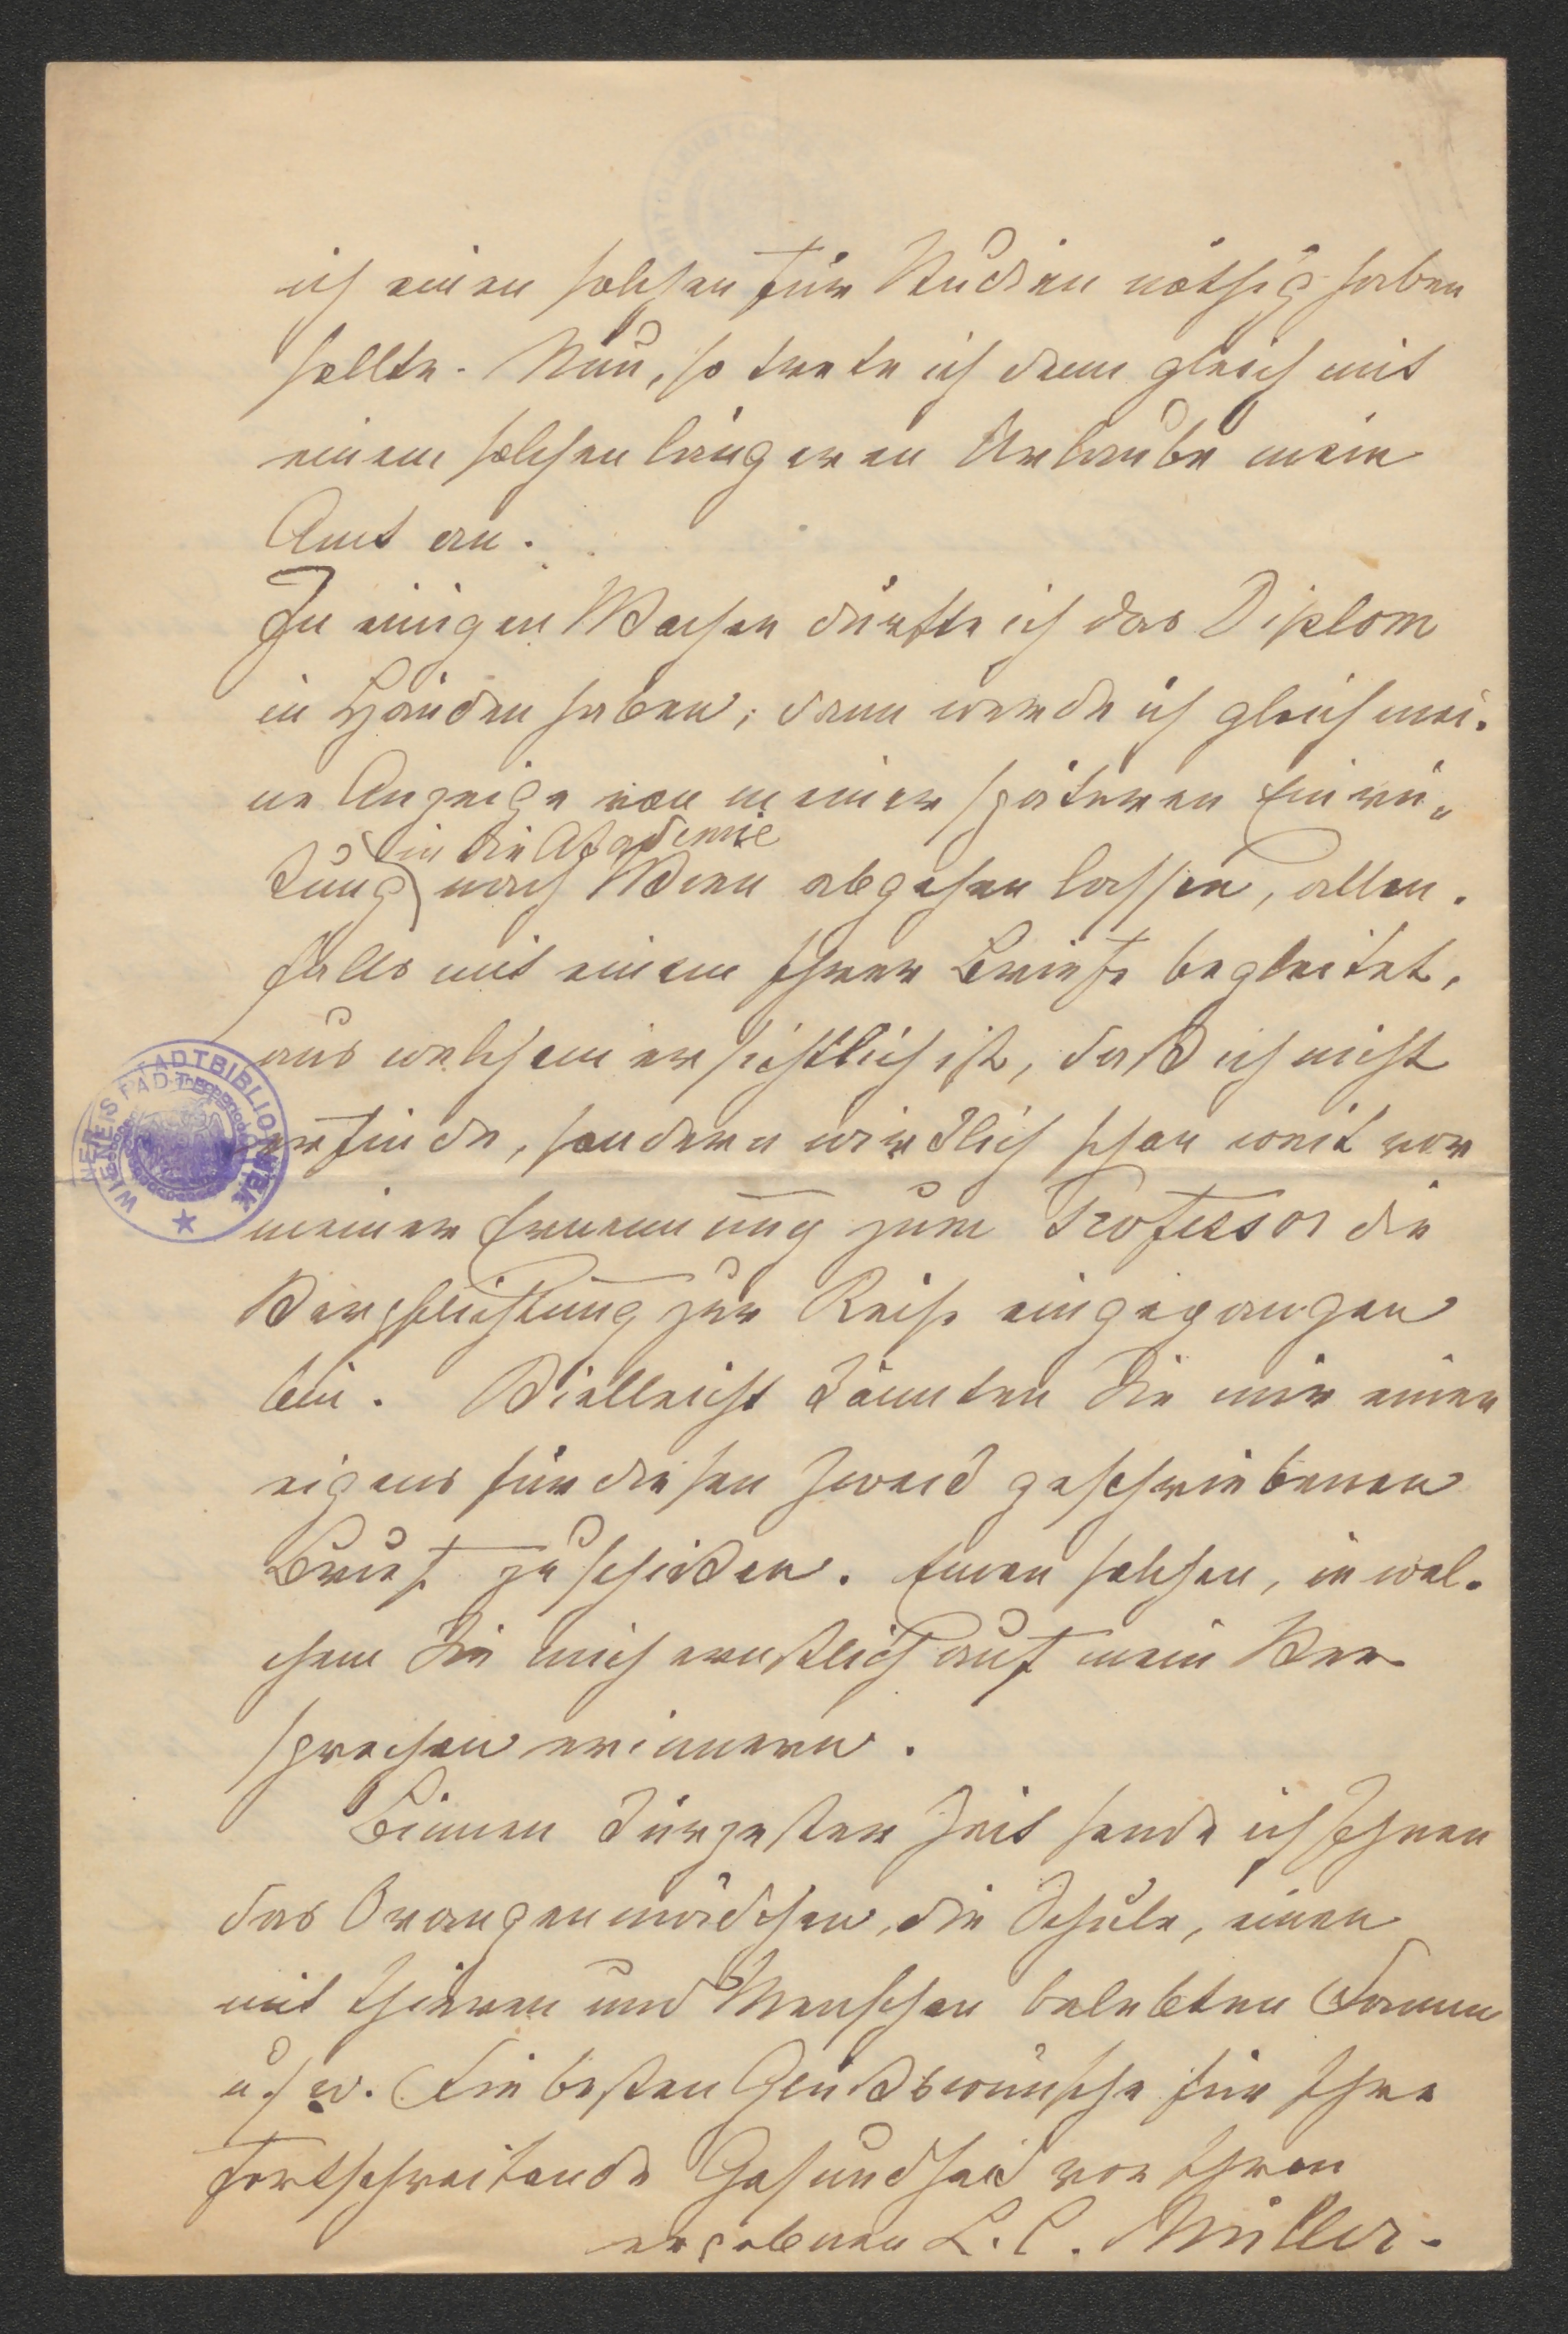 ich einen solchen für Studien nöthig haben
sollte. Nun, so trete ich denn gleich mit
einem solchen längeren Urlaube mein
Amt an.
In einigen Wochen dürfte ich das Diplom
in Händen haben; dann werde ich gleich mei-
ne Anzeige von meiner späteren Einrü-
in die Akademie
kung nach Wien abgehen lassen, allen-
falls mit einem Ihrer Briefe begleitet,
aus welchem ersichtlich ist, daß ich nicht
erfinde, sondern wirklich schon weit vor
meiner Ernennung zum Professor die
Verpflichtung zur Reise eingegangen
bin. Vielleicht könnten Sie mir einen
eigens für diesen Zweck geschriebenen
Brief zuschicken. Einen solchen, in wel-
chem Sie mich ernstlich auf mein Ver-
sprechen erinnern.
Binnen kürzester Zeit sende ich Ihnen
das Orangenmädchen, die Schule, einen
mit Thieren und Menschen belebten
u. s. w. Die besten Glückswünsche für Ihre
fortschreitende Gesundheit von Ihrem
ergebenen L. C. Müller.
WIENER STADTBIBLIOTHEK